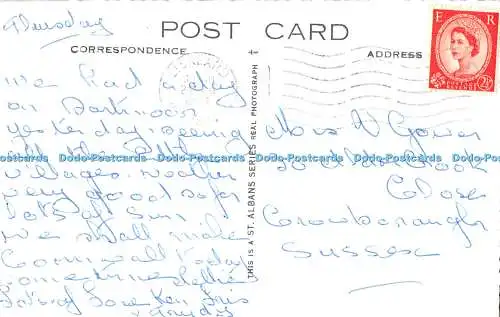 Thursday
POST CARD
CORRESPONDENCE
ADDRESS
E R
POSTAGE REVENUE
2½D
THIS IS A ST. ALBANS SERIES REAL PHOTOGRAPH
We had a day
on Dartmoor
yesterday seeing
all the little
villages. weather
very good so far
lots of sun
we shall make
Cornwall today
sometime
Mrs V Gower
Close
Crowborough
Sussex
Dodo-Postcards Dodo-Postcards Dodo-Postcards Dodo-Postcards Dodo-Postcards Dodo-Postcards